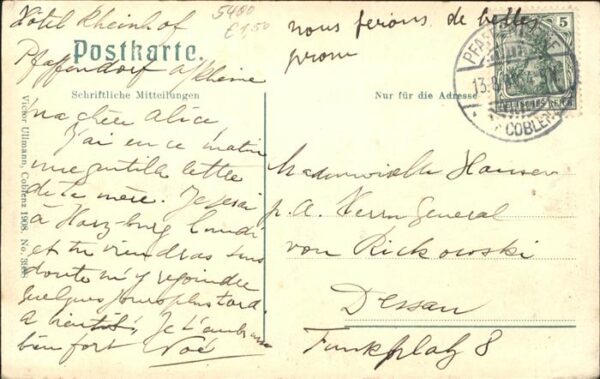 Hôtel Rheinhof
Pfaffendorf a/Rheine
5480
£1,50
nous ferons de belles
prom
Postkarte.
Schriftliche Mitteilungen
Nur für die Adresse
5
DEUTSCHES REICH
13.8
COBLENZ
ma chère Alice
J'ai eu ce matin
une gentille lettre
de ta mère. Je serai
à Harzburg lundi
et tu viendras sans
doute m'y rejoindre
quelques jours plus tard
à bientôt. Je t'embrasse
bien fort
Mademoiselle Hansen
p. A. Herrn General
von Rickowski
Dessau
Funkplatz 8
Victor Ullmann, Coblenz 1908. No.